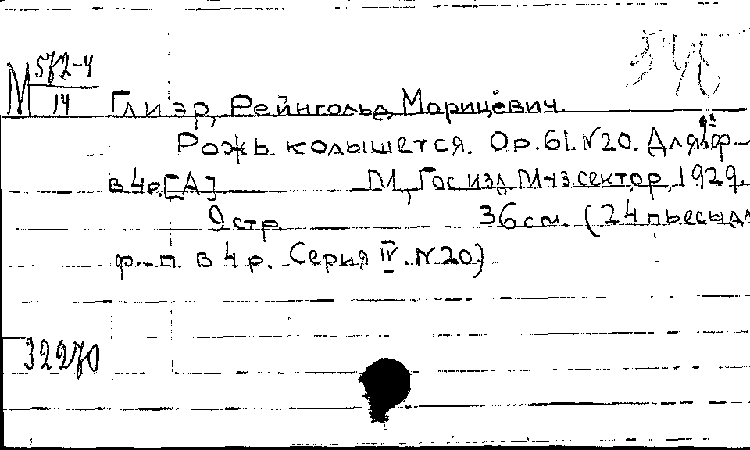 М 572-4
14
Глиэр, Рейнгольд Морицевич.
Рожь колышется. Ор. 61. N20. Для ф-
в 4 р. [A] М, Гос изд Муз сектор, 1929.
9 стр 36 см. (24 пьесы дл
ф-п. в 4 р. Серия IV. N20)
32270